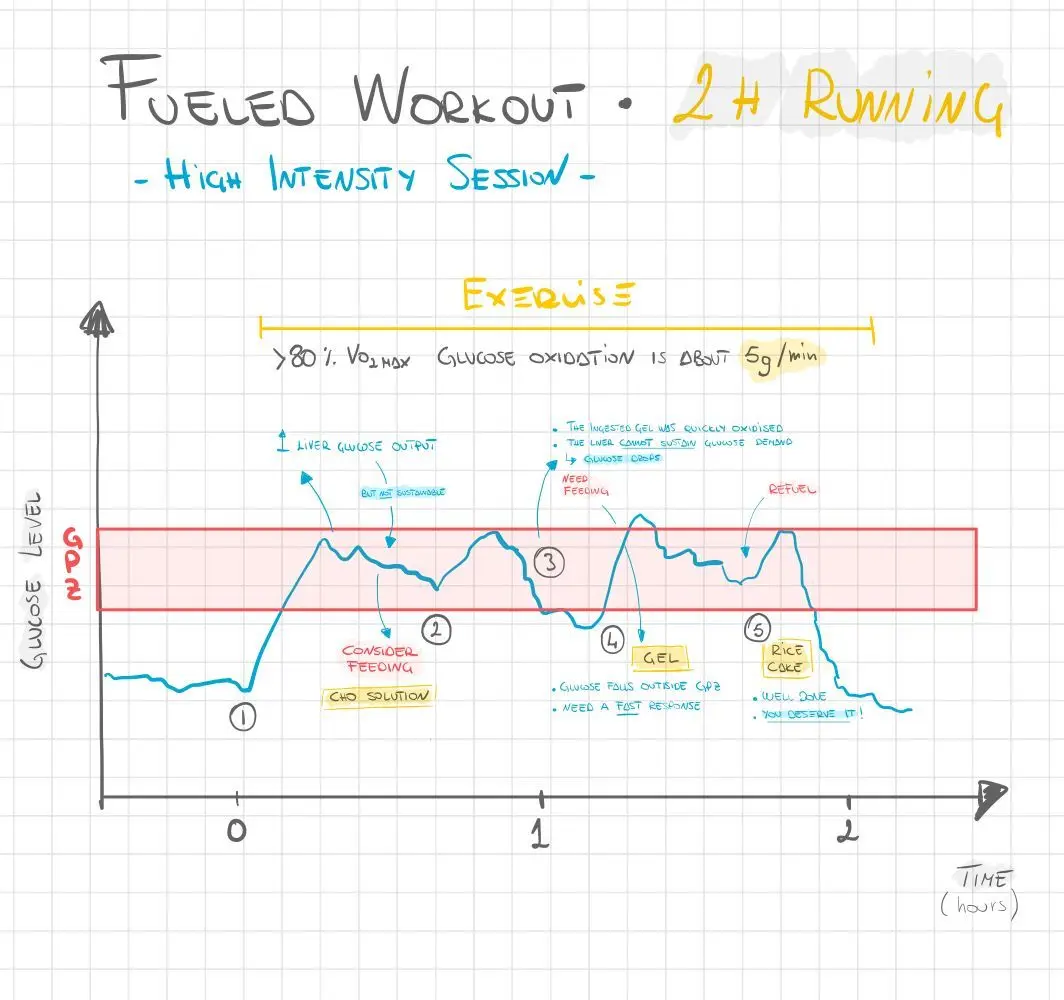 FUELED WORKOUT • 2H RUNNING
- HIGH INTENSITY SESSION -
EXERCISE
>80% VO2MAX GLUCOSE OXIDATION IS ABOUT 5g/min
↑ LIVER GLUCOSE OUTPUT
BUT NOT SUSTAINABLE
• THE INGESTED GEL WAS QUICKLY OXIDISED
• THE LIVER CANNOT SUSTAIN GLUCOSE DEMAND
↳ GLUCOSE DROPS
NEED
FEEDING
REFUEL
GLUCOSE LEVEL
GPZ
3
1
2
4
5
CONSIDER
FEEDING
CHO SOLUTION
GEL
• GLUCOSE FALLS OUTSIDE GPZ
• NEED A FAST RESPONSE
RICE
CAKE
• WELL DONE
• YOU DESERVE IT!
0
1
2
TIME
(hours)